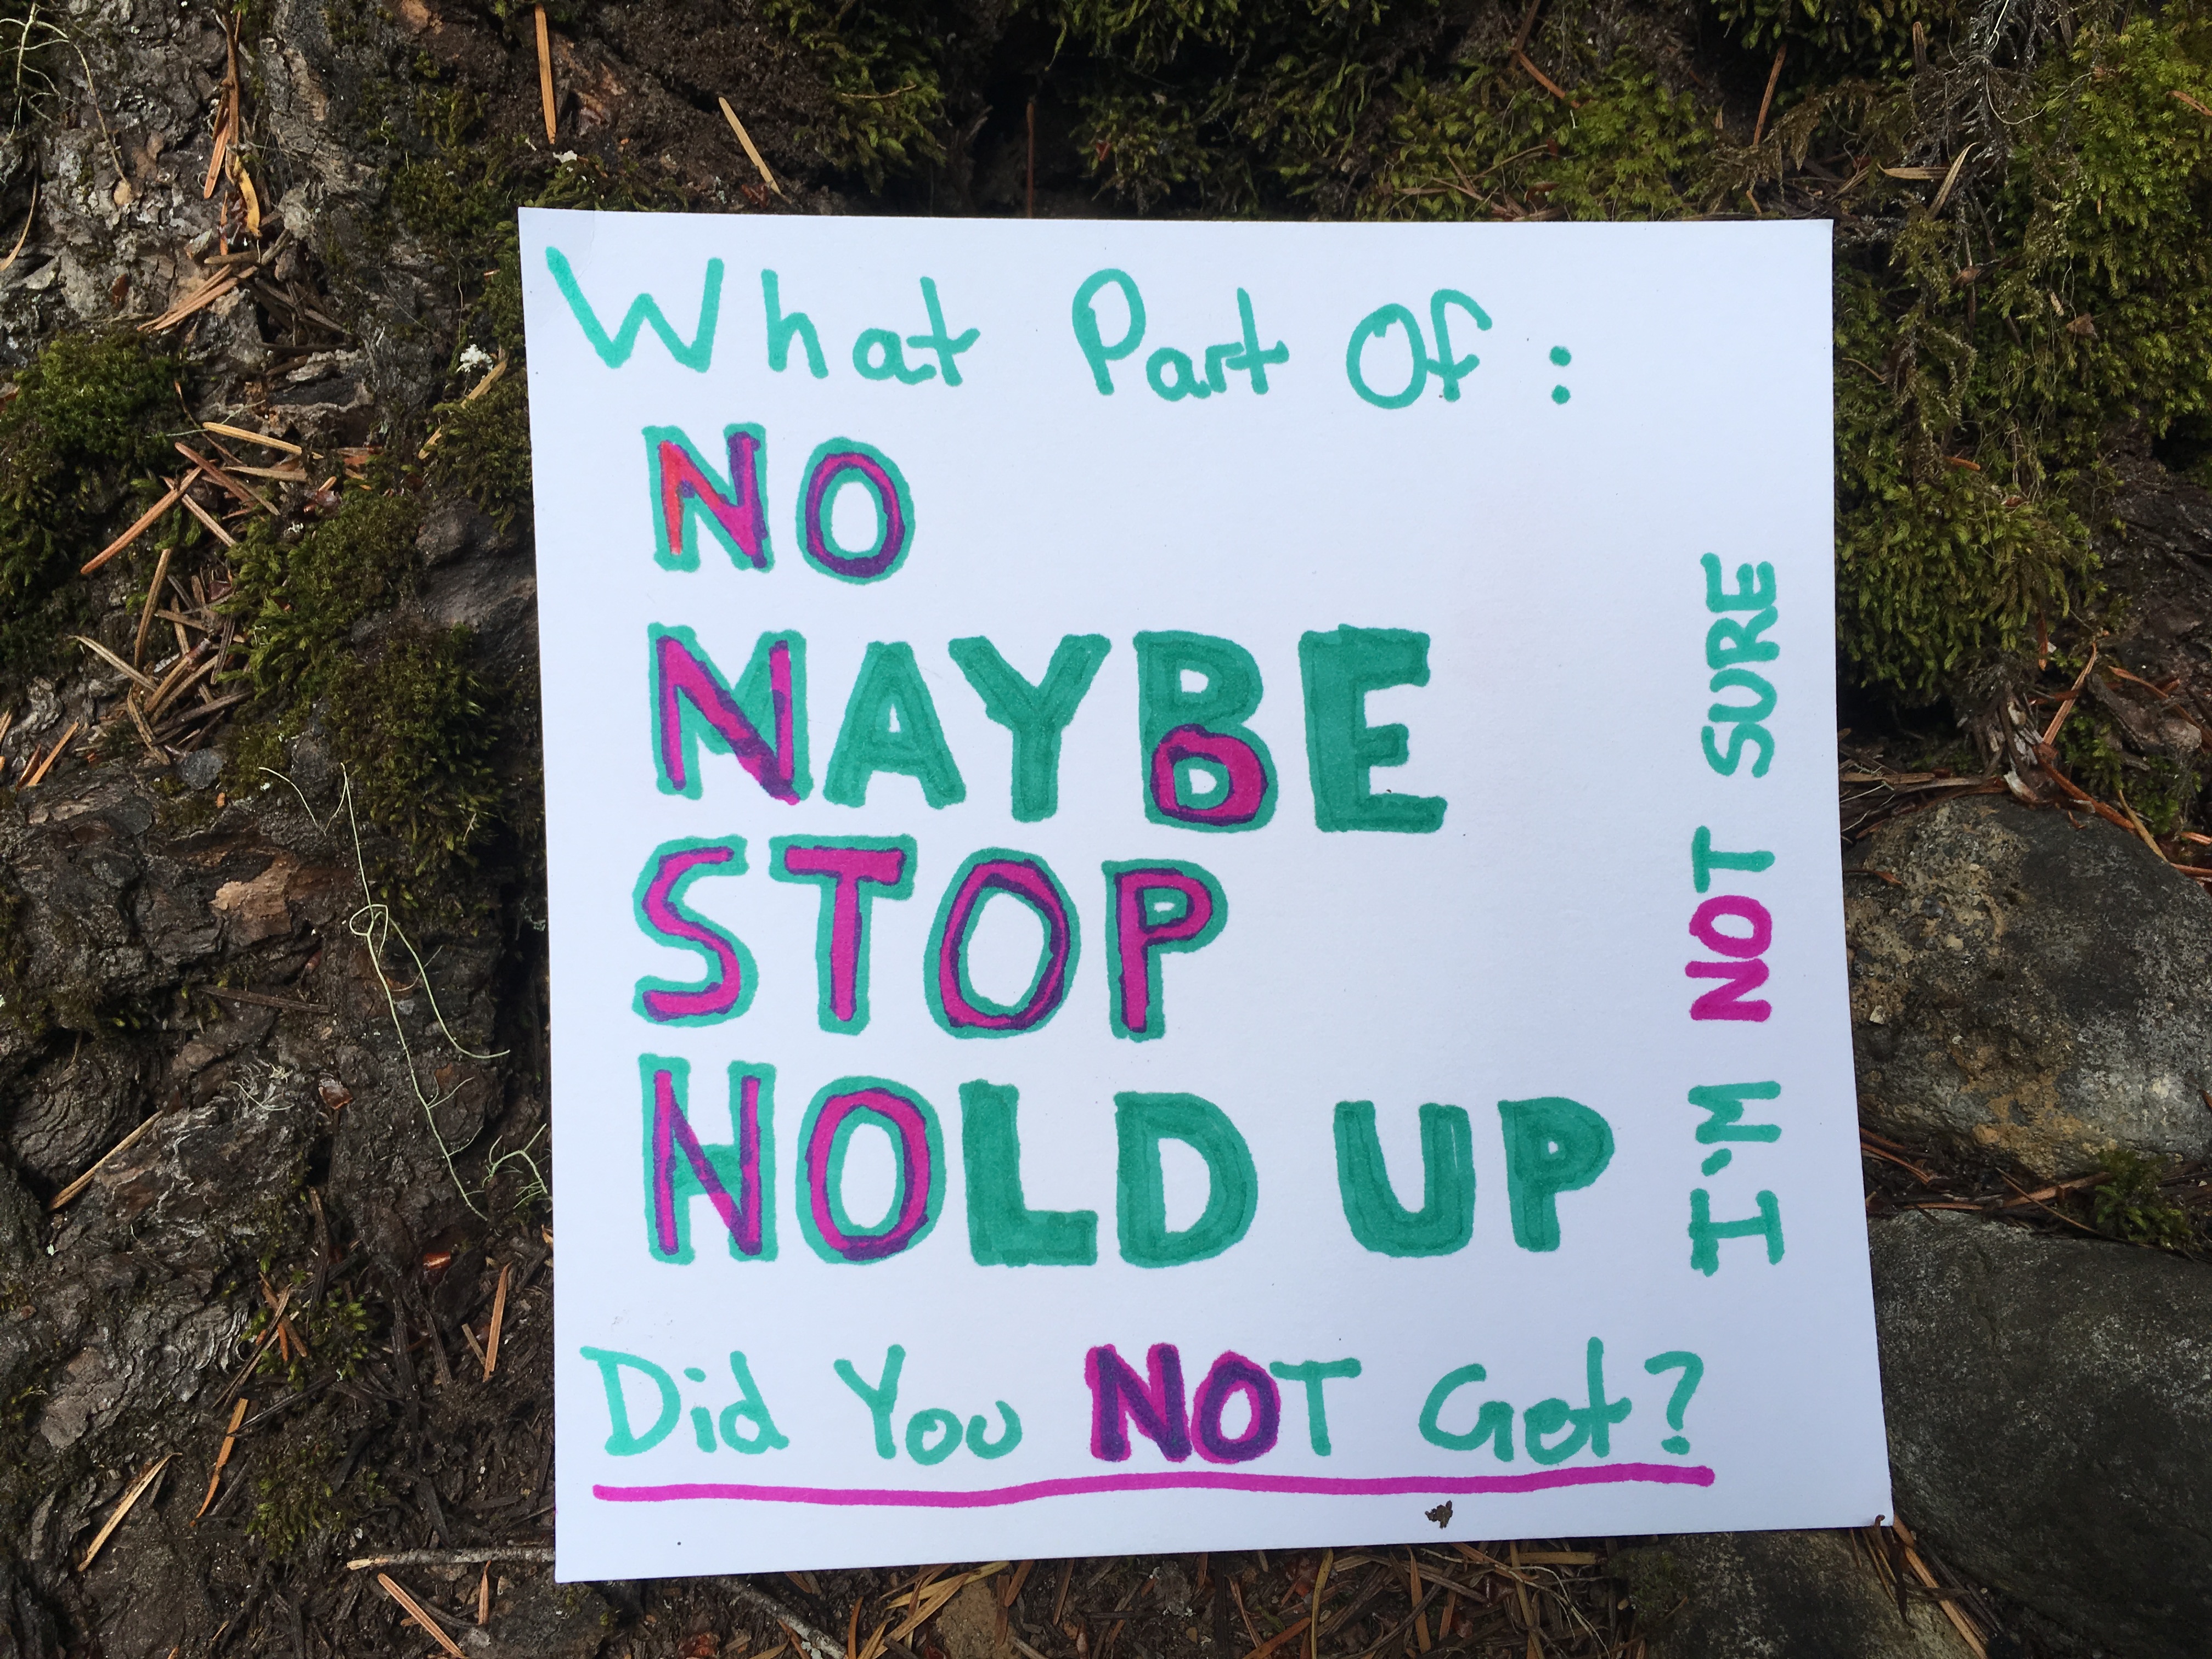 What Part Of:
NO
MAYBE
STOP
HOLD UP
I'M NOT SURE
Did You NOT Get?